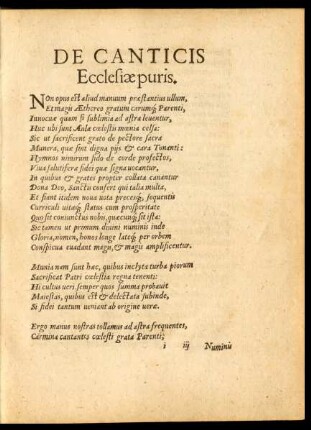 DE CANTICIS
Ecclesiæ puris.
Non opus est aliud manuum præstantius ullum,
Et magis Æthereo gratum carumq́; Parenti,
quam si sublimia ad astra leuentur,
Huc ubi sunt Aulæ cœlestis mœnia celsa:
Sic ut sacrificent grato de pectore sacra
Munera, quæ sint digna pijs & cara Tonanti:
Hymnos nimirum fido de corde profectos,
Viua salutiferæ fidei quæ signa uocantur,
In quibus & grates propter collata canantur
Dona Deo, Sancti confert qui talia multa,
Et fiant itidem noua uota precesq́; sequentis
Curriculi uitæq́; status cum prosperitate
Quos sit coniunctus nobis, quæcunq́; sit ista:
Sic tamen ut primum diuini numinis inde
Gloria, nomen, honos longe lateq́; per orbem
Conspicua euadant magis, & magis amplificentur.
Munia nam sunt hæc, quibus inclyta turba piorum
Sacrificat Patri cœlestia regna tenenti:
Hi cultus ueri semper quos summa probauit
Maiestas, quibus est & delectata subinde,
Si fidei tantum ueniant ab origine ueræ.
Ergo manus nostras tollamus ad astra frequentes,
Carmina cantantes cœlesti grata Parenti;
i iij Numinis